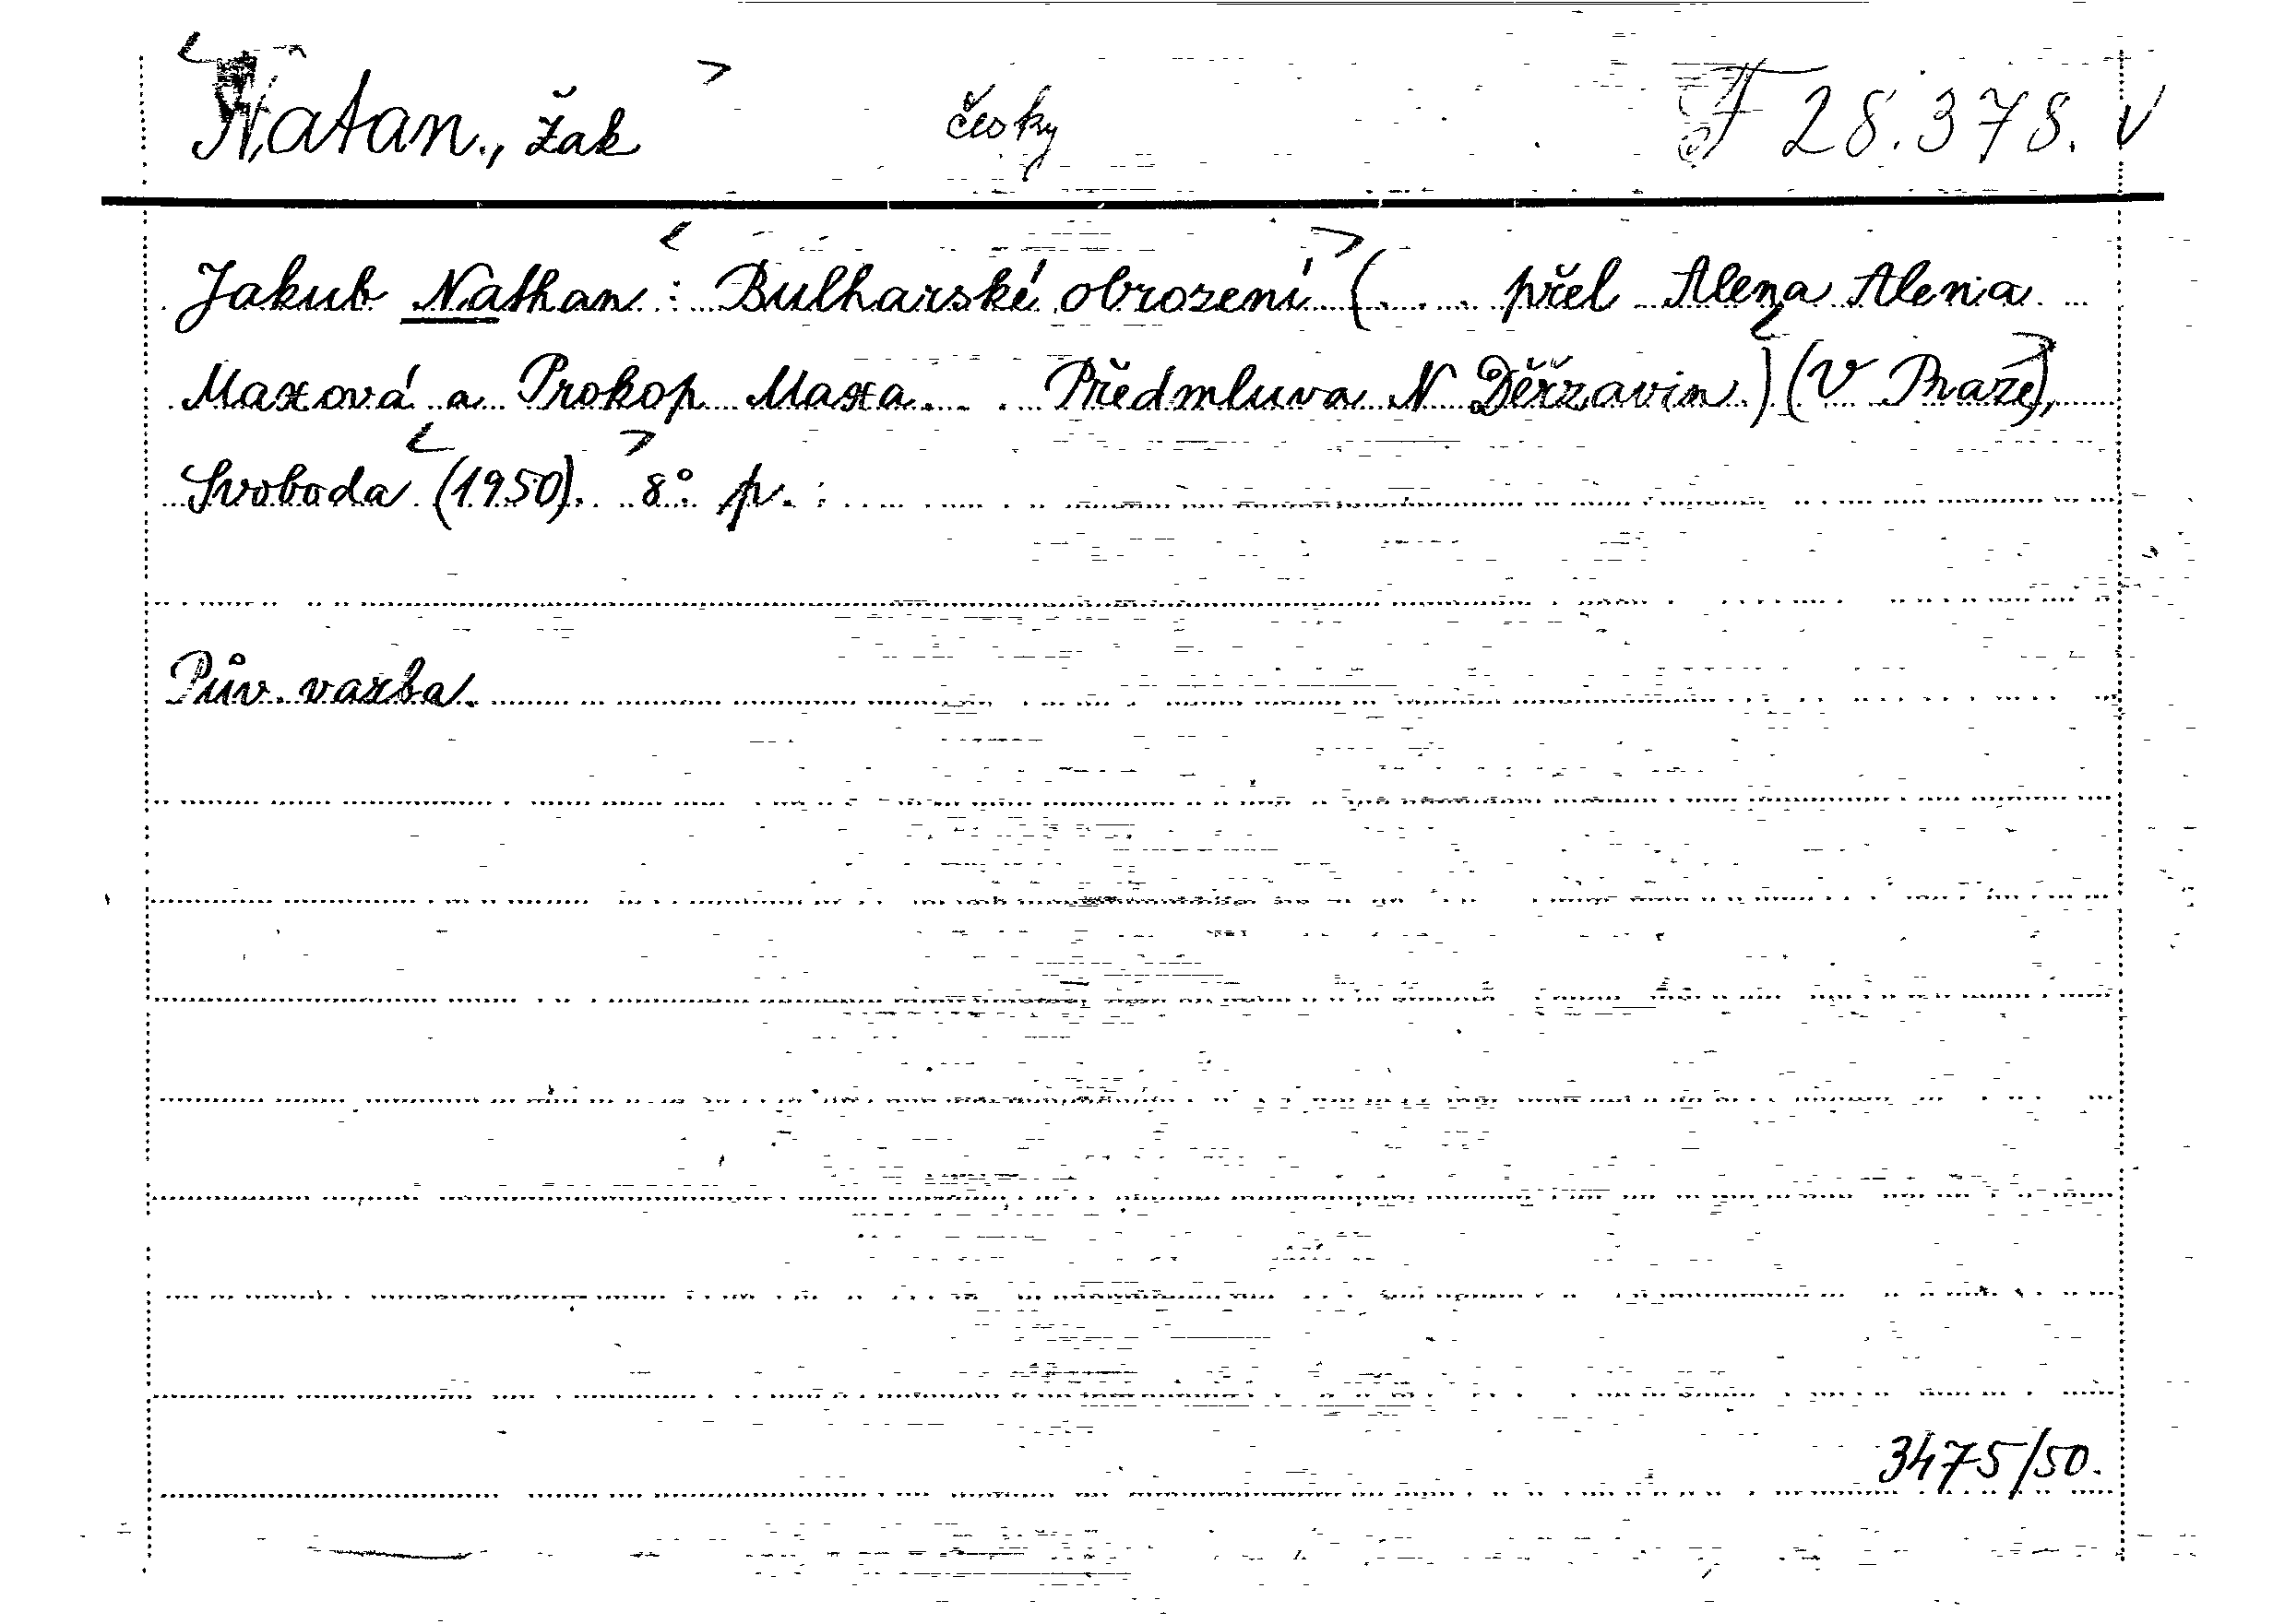 <Natan., žak> česky F 28.378. V
Jakub Nathan : <Bulharské obrození> (. . . přel Alena Alena
Maxová a Prokop Maxa. . . Předmluva N Děržavin.) <(V Praze),>
Svoboda <(1950).> 8°. p. :
Pův. vazba.
3475/50.